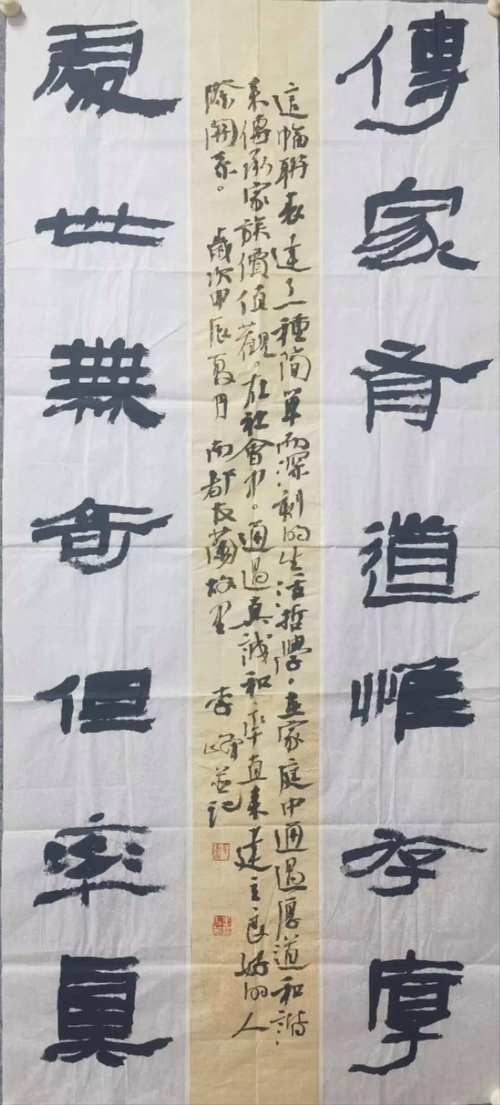 傳家有道惟存厚
處世無奇但率真
這幅聯表達了一種简單而深刻的生活哲學。在家庭中通過厚道和諧.
來傳承家族價值觀。在社會中。通過真誠和率直來建立良好的人
際關系。歲次甲辰夏月 南都 故里 李峰並记